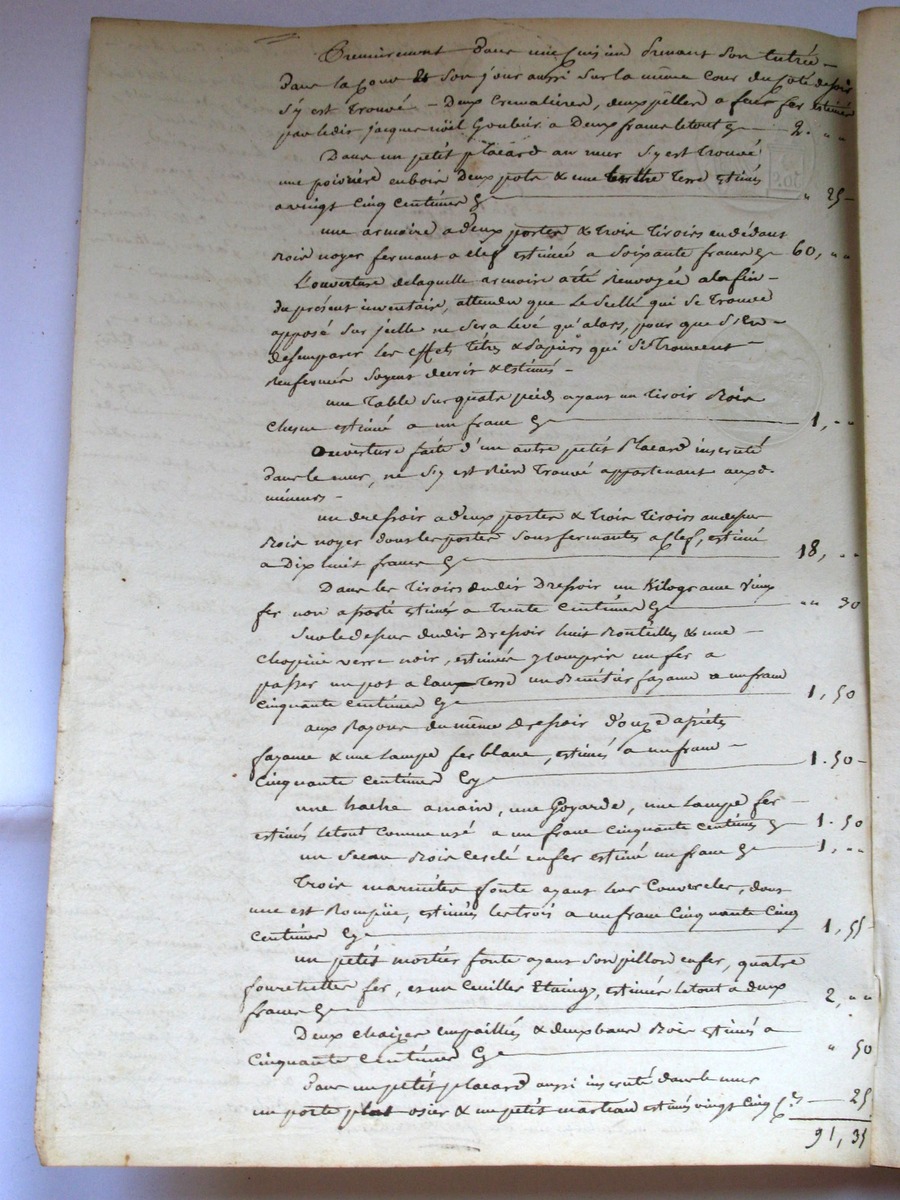 Premierement dans une Cuisine prenant son entrée –
dans la Cour & son jour aussi sur la même Cour du Coté de soir
s'y est trouvé – Deux Cremalieres, deux pelles a feu fer estimés
par ledit jacques noël Goubier a Deux francs le tout Cy — 2. " "
Dans un petit placard au mur s'y est trouvé
une poivrière en bois Deux pots & une terre estimés
a vingt Cinq Centimes Cy — " 25 –
une armoire a deux portes & trois tiroirs en dedans
Bois noyer fermant a clef estimée a Soixante francs Cy 60, " "
L'ouverture de laquelle armoire a été Renvoyée a la fin –
du présent inventair, attendu que Le Scellé qui se trouve
apposé sur icelle ne sera levé qu'alors, pour que s'en –
desemparir les effets titres & papiers qui s'i trouvent –
Renfermés soyent décrit & estimés –
une Table sur quatre pieds ayant un tiroir Bois
Chesne estimé a un franc Cy — 1, " "
Ouverture faite d'un autre petit Placard inscruté
dans le mur, ne s'y est Rien trouvé appartenant auxd.
mineurs –
un dressoir a deux portes & trois tiroirs au dessus
Bois noyer dont les portes sont fermantes a Clef, estimé
a Dix huit francs Cy — 18, " "
Dans les tiroirs dudit Dressoir un Kilograme vieux
fer non a porté estimés a trente Centimes Cy — " " 30
Sur le dessus dudit Dressoir huit Bouteilles & une –
Chopine verre noir, estimés y compris un fer a
passer un pot a Eau Terre un Benitier fayance a un franc
Cinquante Centimes Cy — 1, 50
aux Rayons du même Dressoir Douze assiets
fayance & une Lampe fer blanc, estimés a un franc –
Cinquante Centimes Cy — 1. 50 –
une hache a main, une Goyarde, une Lampe fer –
estimés Le tout Comme usé a un franc Cinquante Centimes Cy — 1. 50
un Seau Bois Cerclé en fer estimé un franc Cy — 1, " "
Trois marmites fonte ayant leur Couvercles, dont
une est Rompüe, estimés les trois a un franc Cinquante Cinq
Centimes Cy — 1, 55 –
un petit mortier fonte ayant son pillon en fer, quatre
fourchettes fer, & un Cuiller Etaing, estimés Le tout a deux
francs Cy — 2, " "
Deux chaizes empaillés & deux bancs Bois estimés a
Cinquante Centimes Cy — " 50
Dans un petit placard aussi inscruté dans le mur
un porte plat osier & un petit marteau estimés vingt Cinq Cs — 25
91, 35